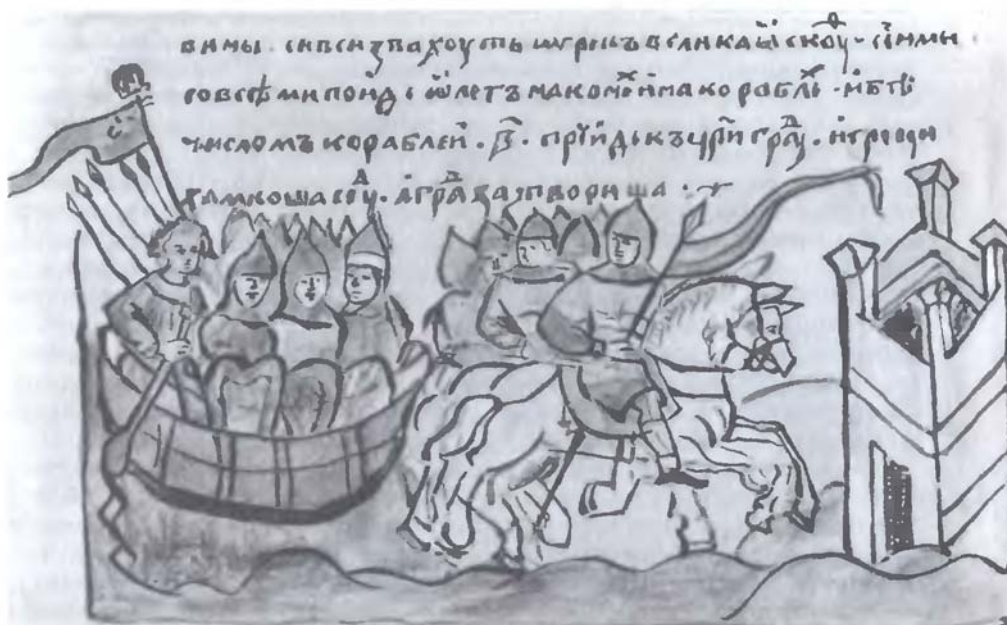 вимы · си вси звахоуть ѿ грекъ великаꙗ скоуⷴ · сими
со всѣми поиде ѡлегъ на конеⷯ и на кораблеⷯ · и бѣ
числомъ кораблей · в҃ · прїиде къ цр҃ю граⷣу ·
замкоша соуⷣ · а граⷣ затвориша ·